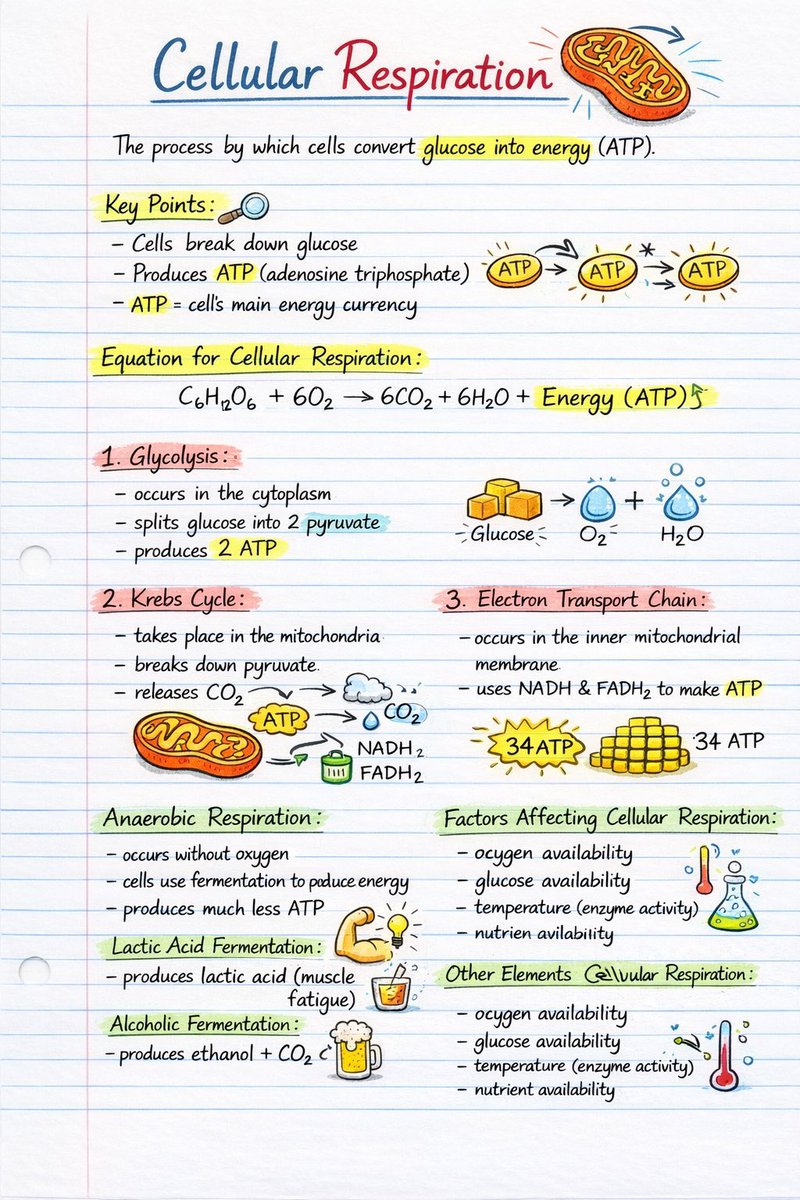 Cellular Respiration
The process by which cells convert glucose into energy (ATP).
Key Points:
– Cells break down glucose
– Produces ATP (adenosine triphosphate)
– ATP = cell's main energy currency
ATP ATP * ATP
Equation for Cellular Respiration:
C₆H₁₂O₆ + 6O₂ → 6CO₂ + 6H₂O + Energy (ATP)
1. Glycolysis:
– occurs in the cytoplasm
– splits glucose into 2 pyruvate
– produces 2 ATP
Glucose → O₂ + H₂O
2. Krebs Cycle:
– takes place in the mitochondria
– breaks down pyruvate.
– releases CO₂
ATP
CO₂
NADH₂
FADH₂
3. Electron Transport Chain:
– occurs in the inner mitochondrial
membrane
– uses NADH & FADH₂ to make ATP
34 ATP
34 ATP
Anaerobic Respiration:
– occurs without oxygen
– cells use fermentation to poduce energy
– produces much less ATP
Lactic Acid Fermentation:
– produces lactic acid (muscle
fatigue)
Alcoholic Fermentation:
– produces ethanol + CO₂
Factors Affecting Cellular Respiration:
– ocygen availability
– glucose availability
– temperature (enzyme activity)
– nutrien avilability
Other Elements Respiration:
– ocygen availability
– glucose availability
– temperature (enzyme activity)
– nutrient availability